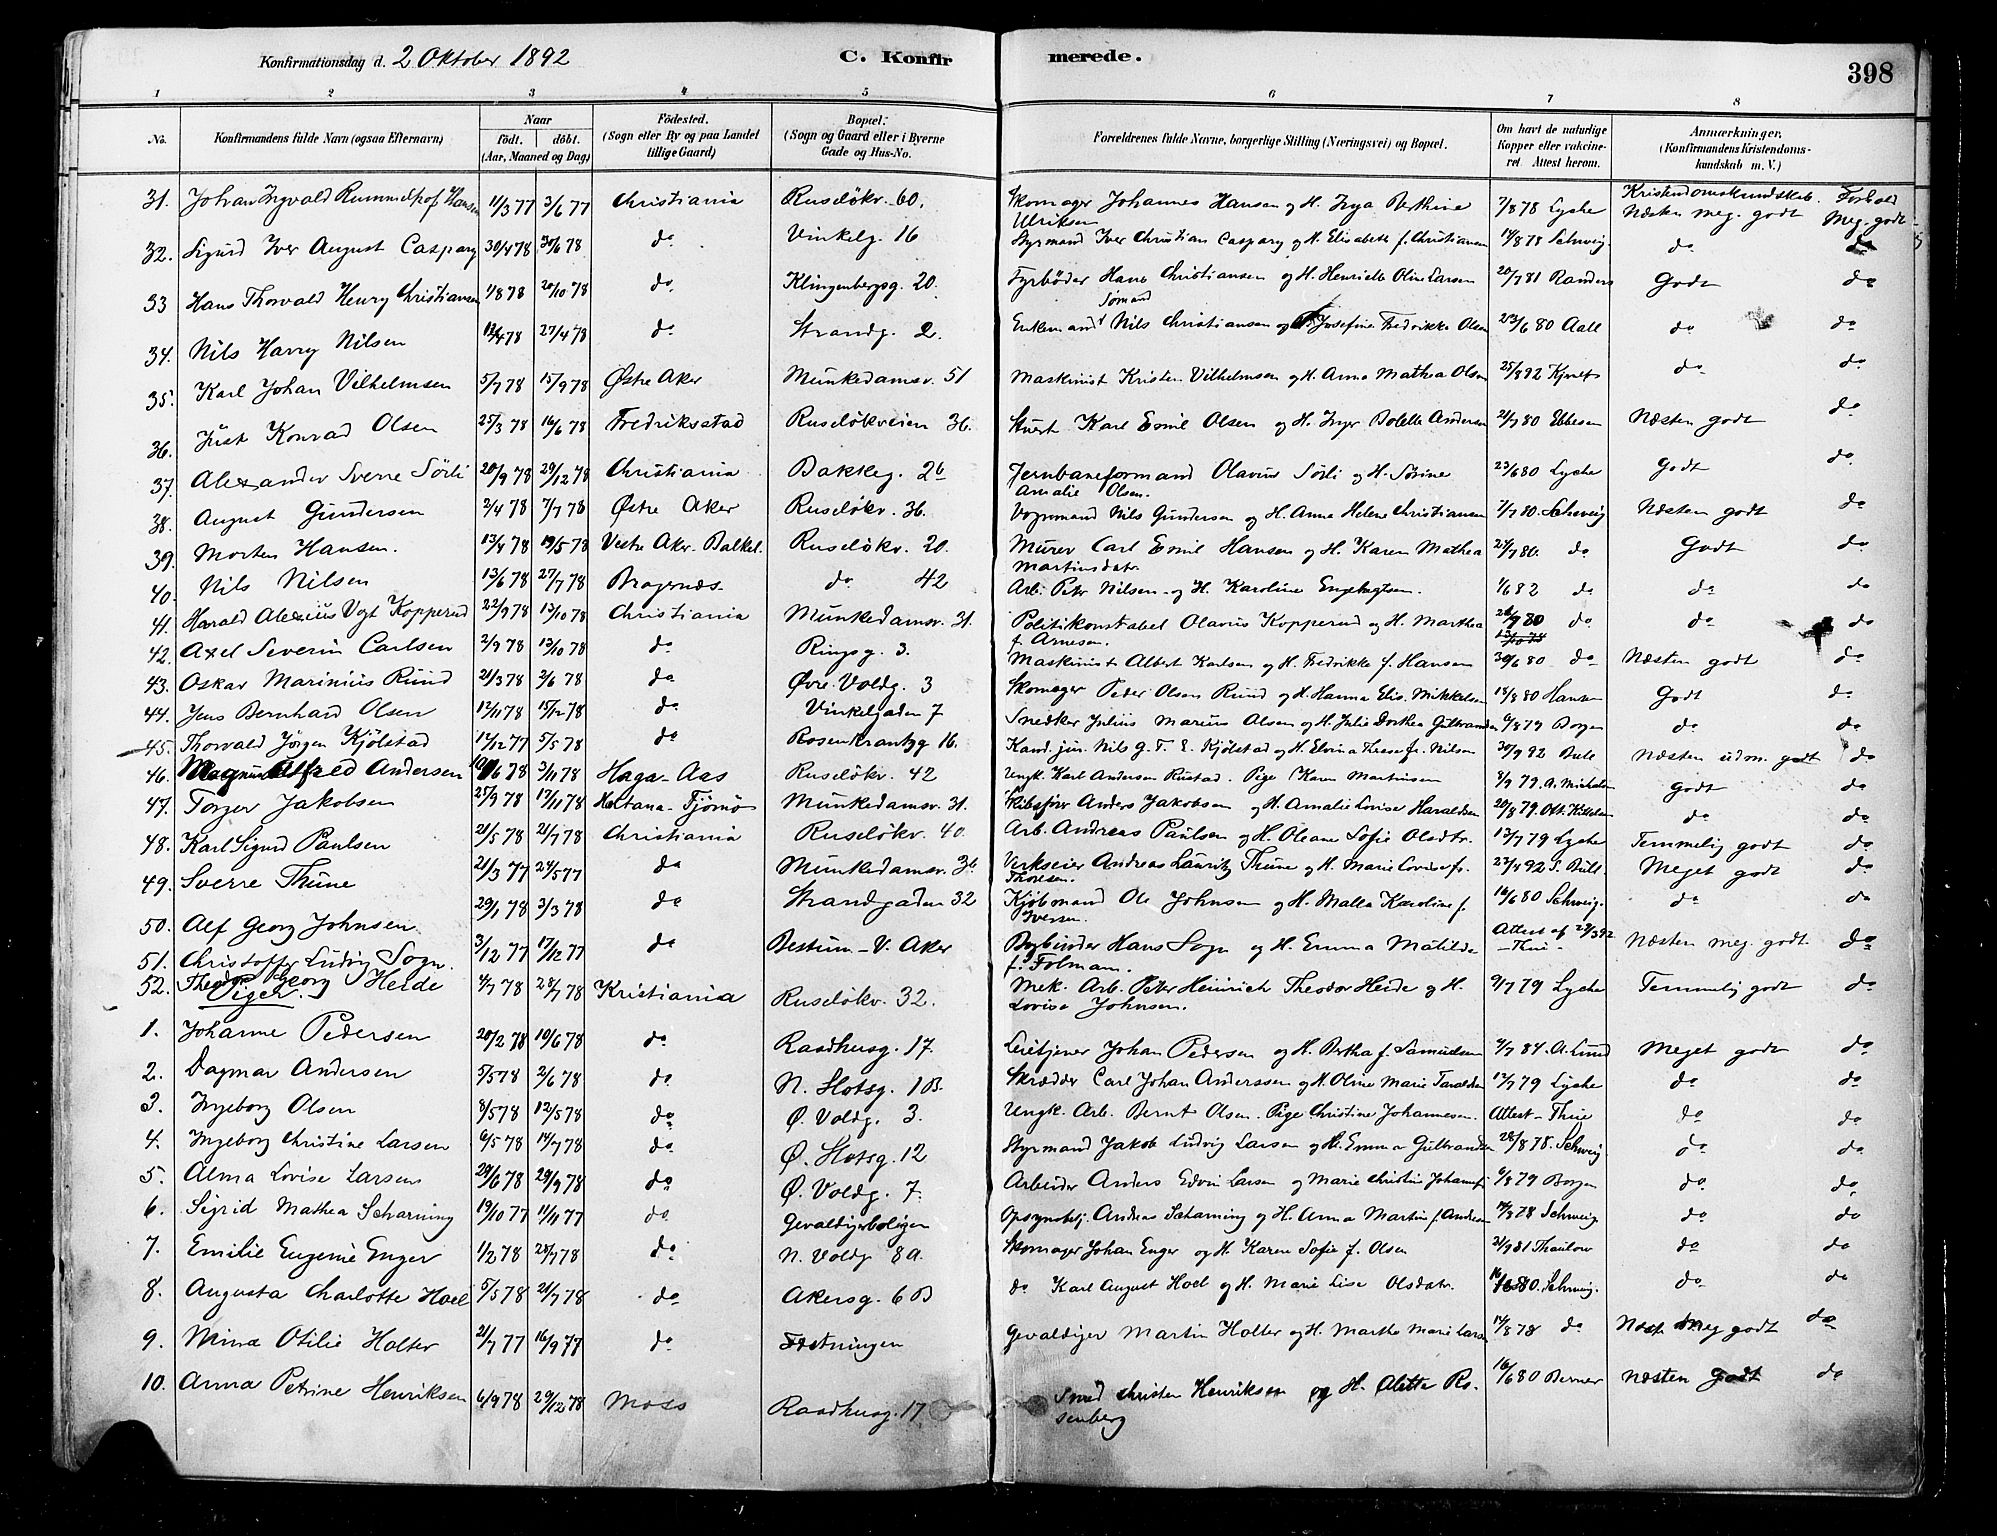 Konfirmationsdag d. 2 Oktober 1892 C. Konfirmerede. 398
1 2 3 4 5 6 7 8
No. Konfirmandens fulde Navn (ogsaa Efternavn) Naar födt. döbt. (Aar, Maaned og Dag) Födested. (Sogn eller By og paa Landet tillige Gaard) Bopæl: (Sogn og Gaard eller i Byerne Gade og Hus-No. Forældrenes fulde Navne, borgerlige Stilling (Næringsvei) og Bopæl. Om havt de naturlige Kopper eller vakcineret. Attest herom. Anmærkninger. (Konfirmandens Kristendomskundskab m. V.)
Kristendomskundskab. Forhold
31. Johan Ingvald Hansen 11/3 77 3/6 77 Christiania Ruseløkv. 60. Skomager Johannes Hansen og H. Inga Berthine Ulriksen 7/8 78 Lyche Næsten meg. godt Meg. godt
32. Sigurd Iver August Caspary 30/4 78 30/6 78 do Vinkelg. 16 Styrmand Iver Christian Caspary og H. Elisabeth f. Christiansen 14/8 78 Schweig. do do
33 Hans Thorvald Henry Christiansen 1/8 78 20/10 78 do. Klingenbergg. 20. Fyrbøder Hans Christiansen og H. Henriette Oline Larsen 20/7 81 Randers Godt do
34. Nils Harry Nilsen 12/4 78 27/4 78 do Strandg. 2. Enkemand Sømand Nils Christiansen og Josefine Fredrikke Olsen 23/6 80 Aall do do
35. Karl Johan Vilhelmsen 5/7 78 15/9 78 Østre Aker Munkedamsv. 51 Maskinist Kristen Vilhelmsen og H. Anna Mathea Olsen 25/8 92 do do
36. Just Konrad Olsen 25/3 78 16/6 78 Fredriksstad Ruseløkveien 36. Stuert Karl Emil Olsen og H. Inger Bolette Andersen 21/7 80 Ebbesen Næsten godt do
37. Alexander Sverre Sörli 20/9 78 29/12 78 Christiania Bakkeg. 2b Jernbaneformand Olavus Sörli og H. Sörine Amalie Olsen. 23/6 80 Lyche Godt do
38. August Gundersen 2/4 78 7/7 78 Østre Aker Ruseløkv. 36. Vognmand Nils Gundersen og H. Anne Helene Christiansen 7/7 80. Schweig Næsten godt do
39. Morten Hansen. 13/4 78 19/5 78 Vestre Aker. Balkel. Ruseløkv. 20. Murer Carl Emil Hansen og H. Karen Mathea Martinsdatr. 27/7 80. do Godt do
40. Nils Nilsen 13/6 78 27/7 78 Bragernæs do 42 Arb. Petr Nilsen og H. Karoline Engebretsen. 1/6 82 do do do
41. Harald Alexius Vogt Kopperud 22/9 78 13/10 78 Christiania Munkedamsv. 31. Politikonstabel Olavus Kopperud og H. Marthea f. Arnesen. 24/7 80 do do do
42. Axel Severin Carlsen 2/9 78 13/10 78 do Ringsg. 3. Maskinist Albert Karlsen og H. Fredrikke f. Hansen 30/6 80 do Næsten godt do
43. Oskar Marinius Rund 21/3 78 2/6 78 do Øvre Voldg. 3 Skomager Peder Olsen Rund og H. Hanna Elis. Mikkelsen 18/8 80 Hansen Godt do
44. Jens Bernhard Olsen 12/11 78 15/12 78 do Vinkelgaden 7 Snedker Julius Marius Olsen og H. Julie Dorthea Gulbrandsen 6/8 79 Borgen do do
45. Thorvald Jörgen Kjölstad 14/12 77 5/5 78 do Rosenkrantzg 16. Kand. jur. Nils G. T. E. Kjölstad og H. Elvina Therese f. Nilsen 30/9 92 Bull Næsten udm. godt do
46. Magnus Alfred Andersen 10/6 78 3/11 78 Haga-Aas Ruseløkv. 42 Ungk. Karl Andersen Rustad. Pige Karen Martinsen 8/9 79. A. Michelsen Godt do
47. Torger Jakobsen 25/9 78 17/11 78 Holtana-Tjömö Munkedamsv. 31. Skibsförer Anders Jakobsen og H. Amalie Lovise Haraldsen 20/8 79. Ott. Kittelsen do do
48. Karl Sigurd Paulsen 21/5 78 21/7 78 Christiania Ruseløkv. 40 Arb. Andreas Paulsen og H. Oleane Sofie Olsdtr. 13/7 79 Lyche Temmelig godt do
49. Sverre Thune 21/3 77 24/5 77 do Munkedamsv. 36 Verkseier Andreas Lauritz Thune og H. Marie Lovise f. Thoresen. 22/4 92 S. Bull. Meget godt do
50. Alf Georg Johnsen 29/1 78 3/3 78 do Strandgaden 32 Kjöbmand Ole Johnsen og H. Malla Karoline f. Iversen. 16/6 80 Schweig. do do
51. Christoffer Ludvig Sogn. 3/12 77 17/12 77 do Bestum - V. Aker Bogbinder Hans Sogn og H. Emma Matilde f. Folmann. Attest af 23/3 92 - Thue - Næsten meg. godt. do
52. Theodor Georg Heide 4/7 78 28/7 78 Kristiania Ruseløkv. 32. Mek. Arb. Peter Heinrich Theodor Heide og H. Lovise Johnsen. 9/7 79 Lyche Temmelig godt do
Piger.
1. Johanne Pedersen 20/2 78 10/6 78 do Raadhusg. 17. Leietjener Johan Pedersen og H. Bertha f. Samuelsen 7/7 84. A. Lund Meget godt do
2. Dagmar Andersen 5/5 78 2/6 78 do N. Slotsg. 1 B. Skrædder Carl Johan Anderssen og H. Oline Marie Taraldsen 12/7 79 Lyche do do
3. Ingeborg Olsen 8/5 78 12/5 78 do Ø. Voldg. 3. Ungk. Arb. Bernt Olsen. Pige Christine Johannesen. Attest - Thue do do
4. Ingeborg Christine Larsen 6/5 78 14/7 78 do Ø. Slotsg. 12 Styrmand Jakob Ludvig Larsen og H. Emma Gulbrandsen 28/8 78. Schweig. do do
5. Alma Lovise Larsen 29/6 78 29/9 78 do Ø. Voldg. 7. Arbeider Anders Edvin Larsen og Marie Christin Johans. 6/8 79 Borgen do do
6. Sigrid Mathea Scharning 19/10 77 11/11 77 do Gevaldigerboligen Opsynsbetj. Andreas Scharning og H. Anna Martine f. Andresen 14/8 78 Schweig. do do
7. Emilie Eugenie Enger 1/2 78 28/7 78 do N. Voldg 8a. Skomager Johan Enger og H. Karen Sofie f. Olsen 21/9 81 Thaulow do do
8. Augusta Charlotte Hoel 5/5 78 21/7 78 do Akersg. 6 B do Karl August Hoel og H. Marie Lise Olsdatr. 16/6 80. Schweig. do do
9. Mina Otilie Holter 21/7 77 16/9 77 do Fæstningen Gevaldiger Martin Holter og H. Marthe Marie Larsen 14/8 78 do Næst. meg godt do
10. Anna Petrine Henriksen 6/9 78 29/12 78 Moss Raadhusg. 17. Smed Christen Henriksen og H. Alette Rosenberg 16/6 80 Berner Næsten godt do